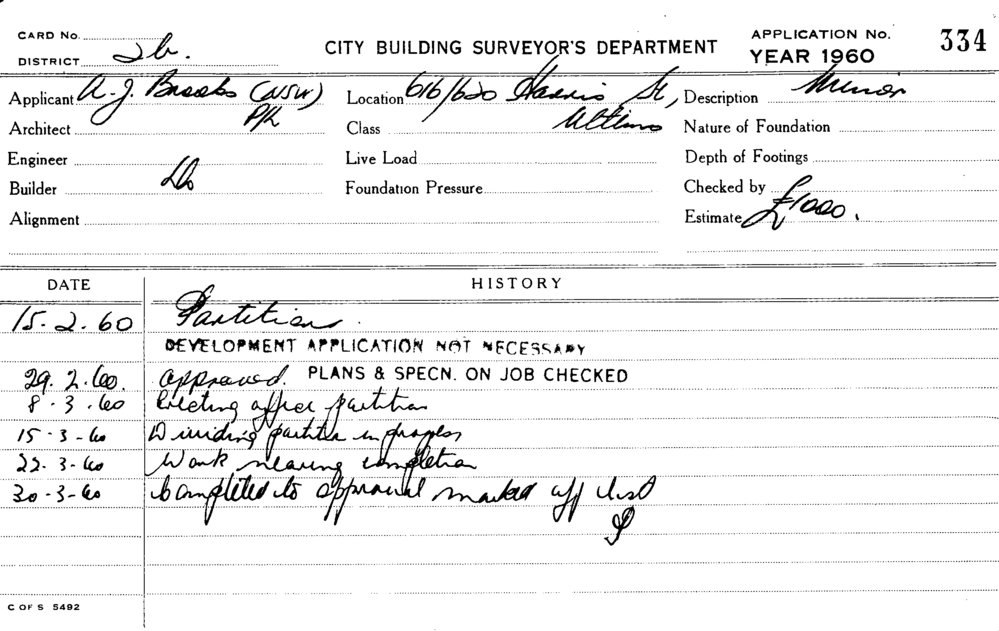 CARD No.
DISTRICT 2b.
CITY BUILDING SURVEYOR'S DEPARTMENT
APPLICATION No. 334
YEAR 1960
Applicant A. J. Brooks (NSW) P/L
Location 616/620 Harris St,
Description Minor
Architect
Class Ultimo
Nature of Foundation
Engineer
Live Load
Depth of Footings
Builder Do
Foundation Pressure
Checked by
Alignment
Estimate £1000.
DATE HISTORY
15.2.60 Partitions.
DEVELOPMENT APPLICATION NOT NECESSARY
29.2.60. approved. PLANS & SPECN. ON JOB CHECKED
8.3.60 Erecting office partition
15-3-60 Dividing partition in progress
22.3-60 Work nearing completion
30-3-60 Completed to approval marked off list
C OF S 5492